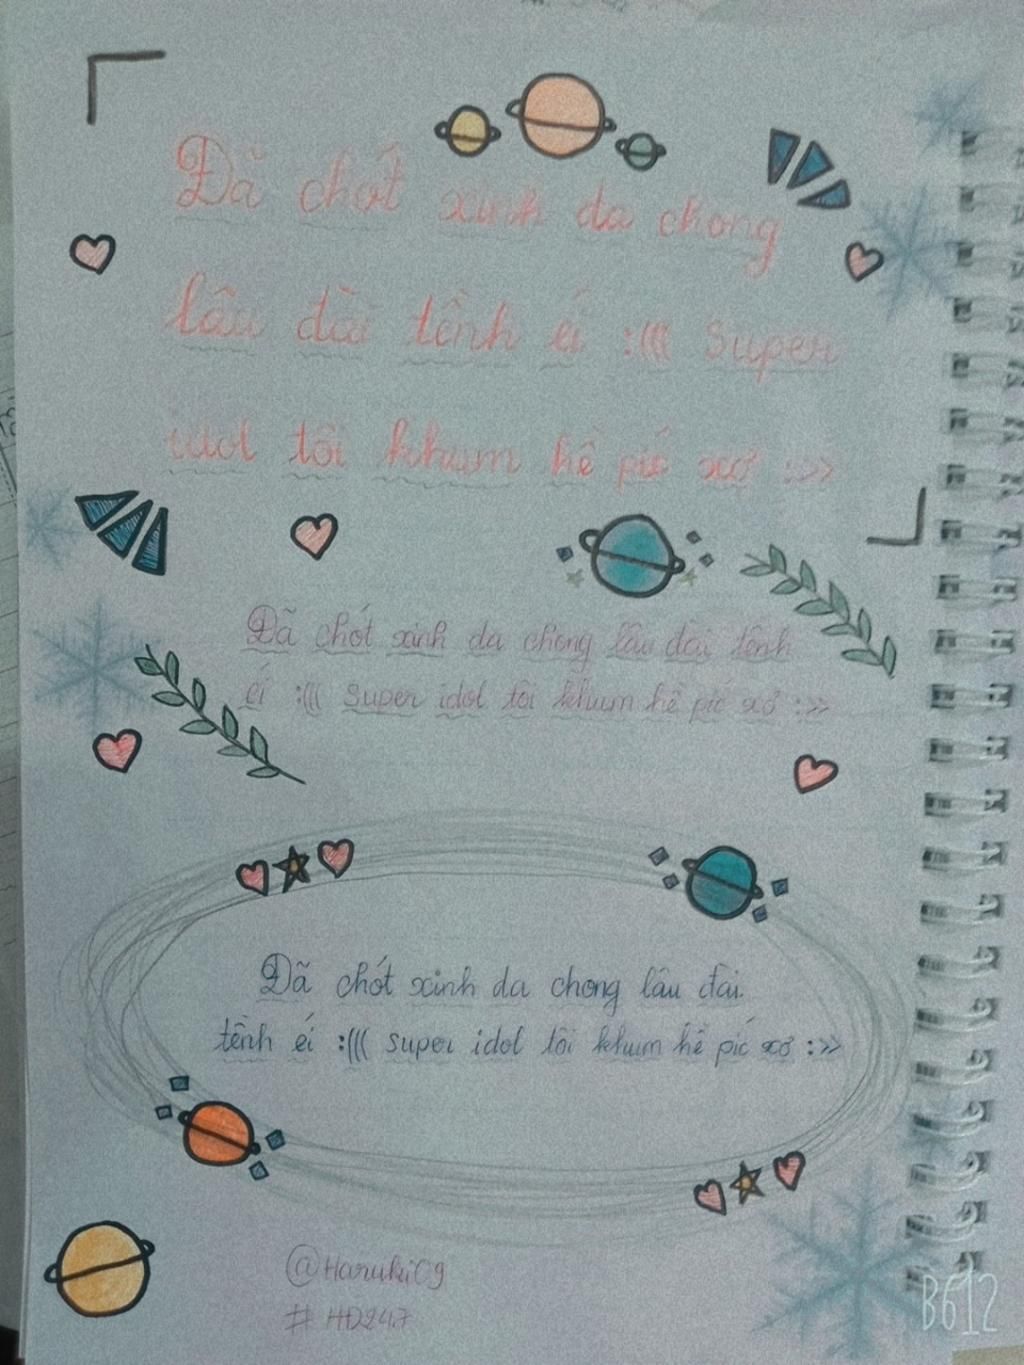 Đã chót xinh da chong
lâu đài tềnh éi :((( super
idol tôi khum hề píc xơ :>>
Đã chót xinh da chong lâu đài tềnh
éi :((( super idol tôi khum hề píc xơ :>>
Đã chót xinh da chong lâu đài
tềnh éi :((( super idol tôi khum hề píc xơ :>>
@Haruki09
# HD247
B612